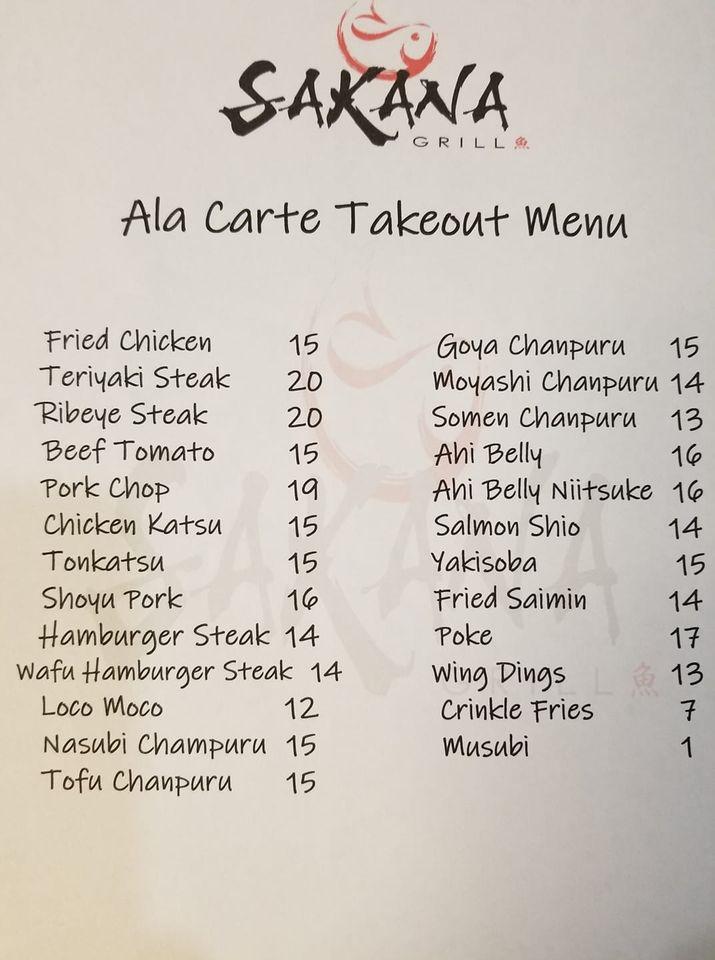 SAKANA
GRILL 魚
Ala Carte Takeout Menu
Fried Chicken 15
Teriyaki Steak 20
Ribeye Steak 20
Beef Tomato 15
Pork Chop 19
Chicken Katsu 15
Tonkatsu 15
Shoyu Pork 16
Hamburger Steak 14
Wafu Hamburger Steak 14
Loco Moco 12
Nasubi Champuru 15
Tofu Chanpuru 15
Goya Chanpuru 15
Moyashi Chanpuru 14
Somen Chanpuru 13
Ahi Belly 16
Ahi Belly Niitsuke 16
Salmon Shio 14
Yakisoba 15
Fried Saimin 14
Poke 17
Wing Dings 13
Crinkle Fries 7
Musubi 1
SAKANA
GRILL 魚